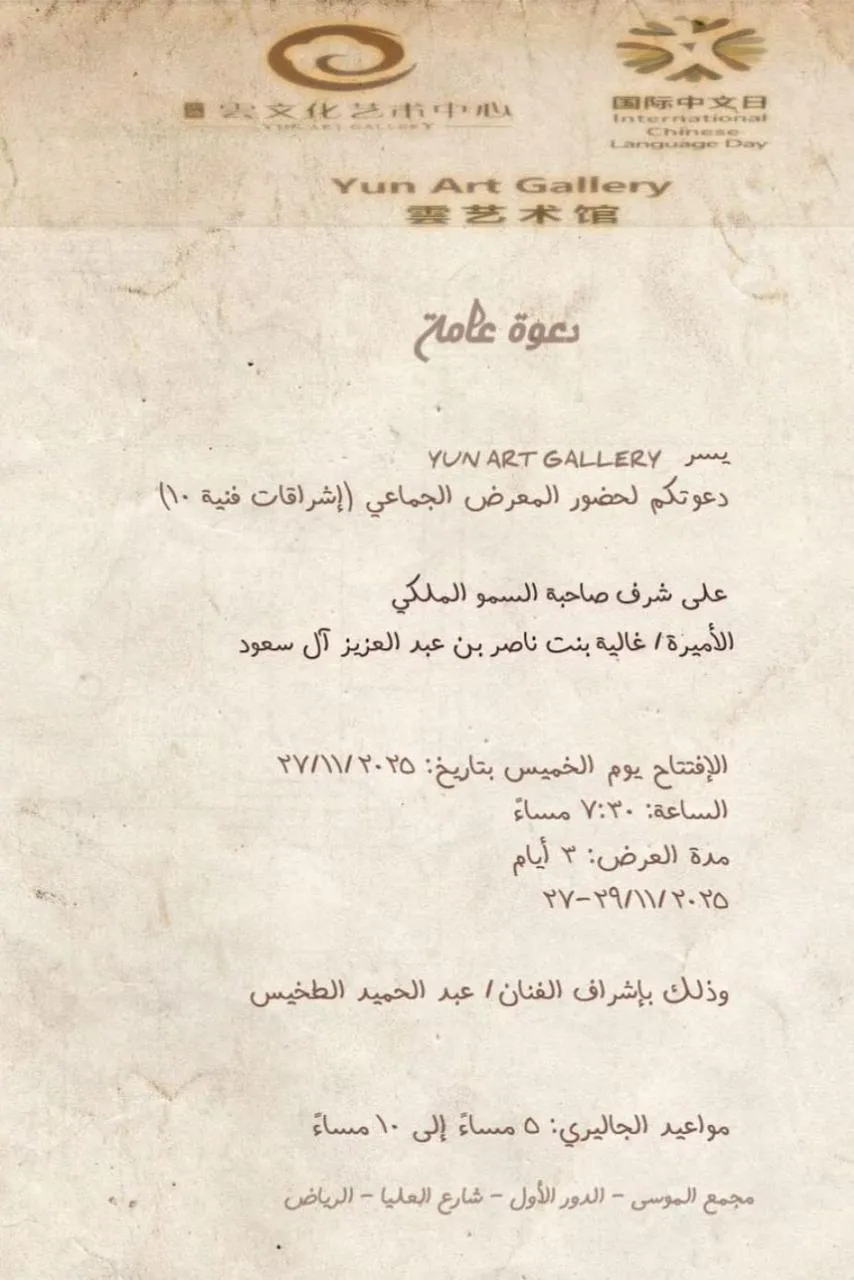 雲文化艺术中心
YUN ART GALLERY
国际中文日
International
Chinese
Language Day
Yun Art Gallery
雲艺术馆
دعوة عامة
يسر YUN ART GALLERY
دعوتكم لحضور المعرض الجماعي (إشراقات فنية ١٠)
على شرف صاحبة السمو الملكي
الأميرة/ غالية بنت ناصر بن عبد العزيز آل سعود
الإفتتاح يوم الخميس بتاريخ: ٢٧/١١/٢٠٢٥
الساعة: ٧:٣٠ مساءً
مدة العرض: ٣ أيام
٢٧-٢٩/١١/٢٠٢٥
وذلك بإشراف الفنان/ عبد الحميد الطخيس
مواعيد الجاليري: ٥ مساءً إلى ١٠ مساءً
مجمع الموسى - الدور الأول - شارع العليا - الرياض